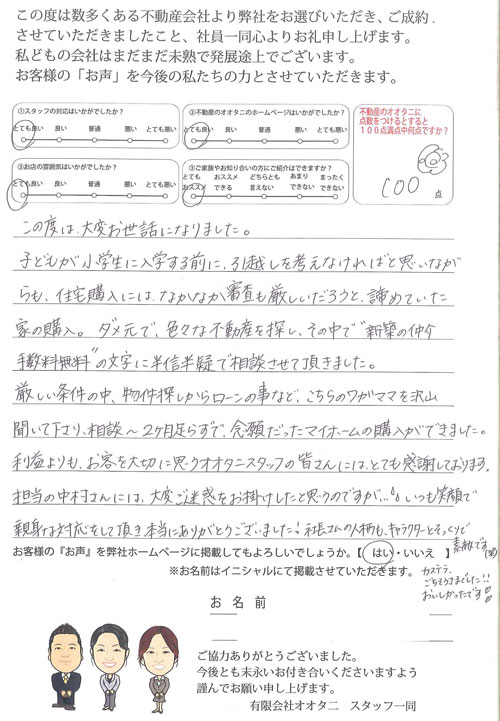 この度は数多くある不動産会社より弊社をお選びいただき、ご成約.
させていただきましたこと、社員一同心よりお礼申し上げます。
私どもの会社はまだまだ未熟で発展途上でございます。
お客様の「お声」を今後の私たちの力とさせていただきます。
①スタッフの対応はいかがでしたか？
とても良い 良い 普通 悪い とても悪い
②不動産のオオタニのホームページはいかがでしたか？
とても良い 良い 普通 悪い とても悪い
不動産のオオタニに
点数をつけるとすると
１００点満点中何点ですか？
100 点
③お店の雰囲気はいかがでしたか？
とても良い 良い 普通 悪い とても悪い
③ご家族やお知り合いの方にご紹介はできますか？
とても
おススメ
おススメ
できる
どちらとも
言えない
あまり
できない
まったく
できない
この度は、大変お世話になりました。
子どもが小学生に入学する前に、引越しを考えなければと思いなが
らも、住宅購入には、なかなか審査も厳しいだろうと、諦めていた
家の購入。 ダメ元で、色々な不動産を探し、その中で“新築の仲介
手数料無料”の文字に半信半疑で相談させて頂きました。
厳しい条件の中、物件探しからローンの事など、こちらのワガママを沢山
聞いて下さり、相談～2ヶ月足らずで、念願だったマイホームの購入ができました。
利益よりも、お客を大切に思うオオタニスタッフの皆さんには、とても感謝しております。
担当の中村さんには、大変ご迷惑をお掛けしたと思うのですが…いつも笑顔で
親身な対応をして頂き本当にありがとうございました！社長さんの人柄も、キャラクターとそっくりで
素敵です(笑)
お客様の『お声』を弊社ホームページに掲載してもよろしいでしょうか。【 はい・いいえ 】
※お名前はイニシャルにて掲載させていただきます。
カステラ、
ごちそうさまでした!!
おいしかったです!!
お 名 前
ご協力ありがとうございました。
今後とも末永いお付き合いくださいますよう
謹んでお願い申し上げます。
有限会社オオタニ スタッフ一同